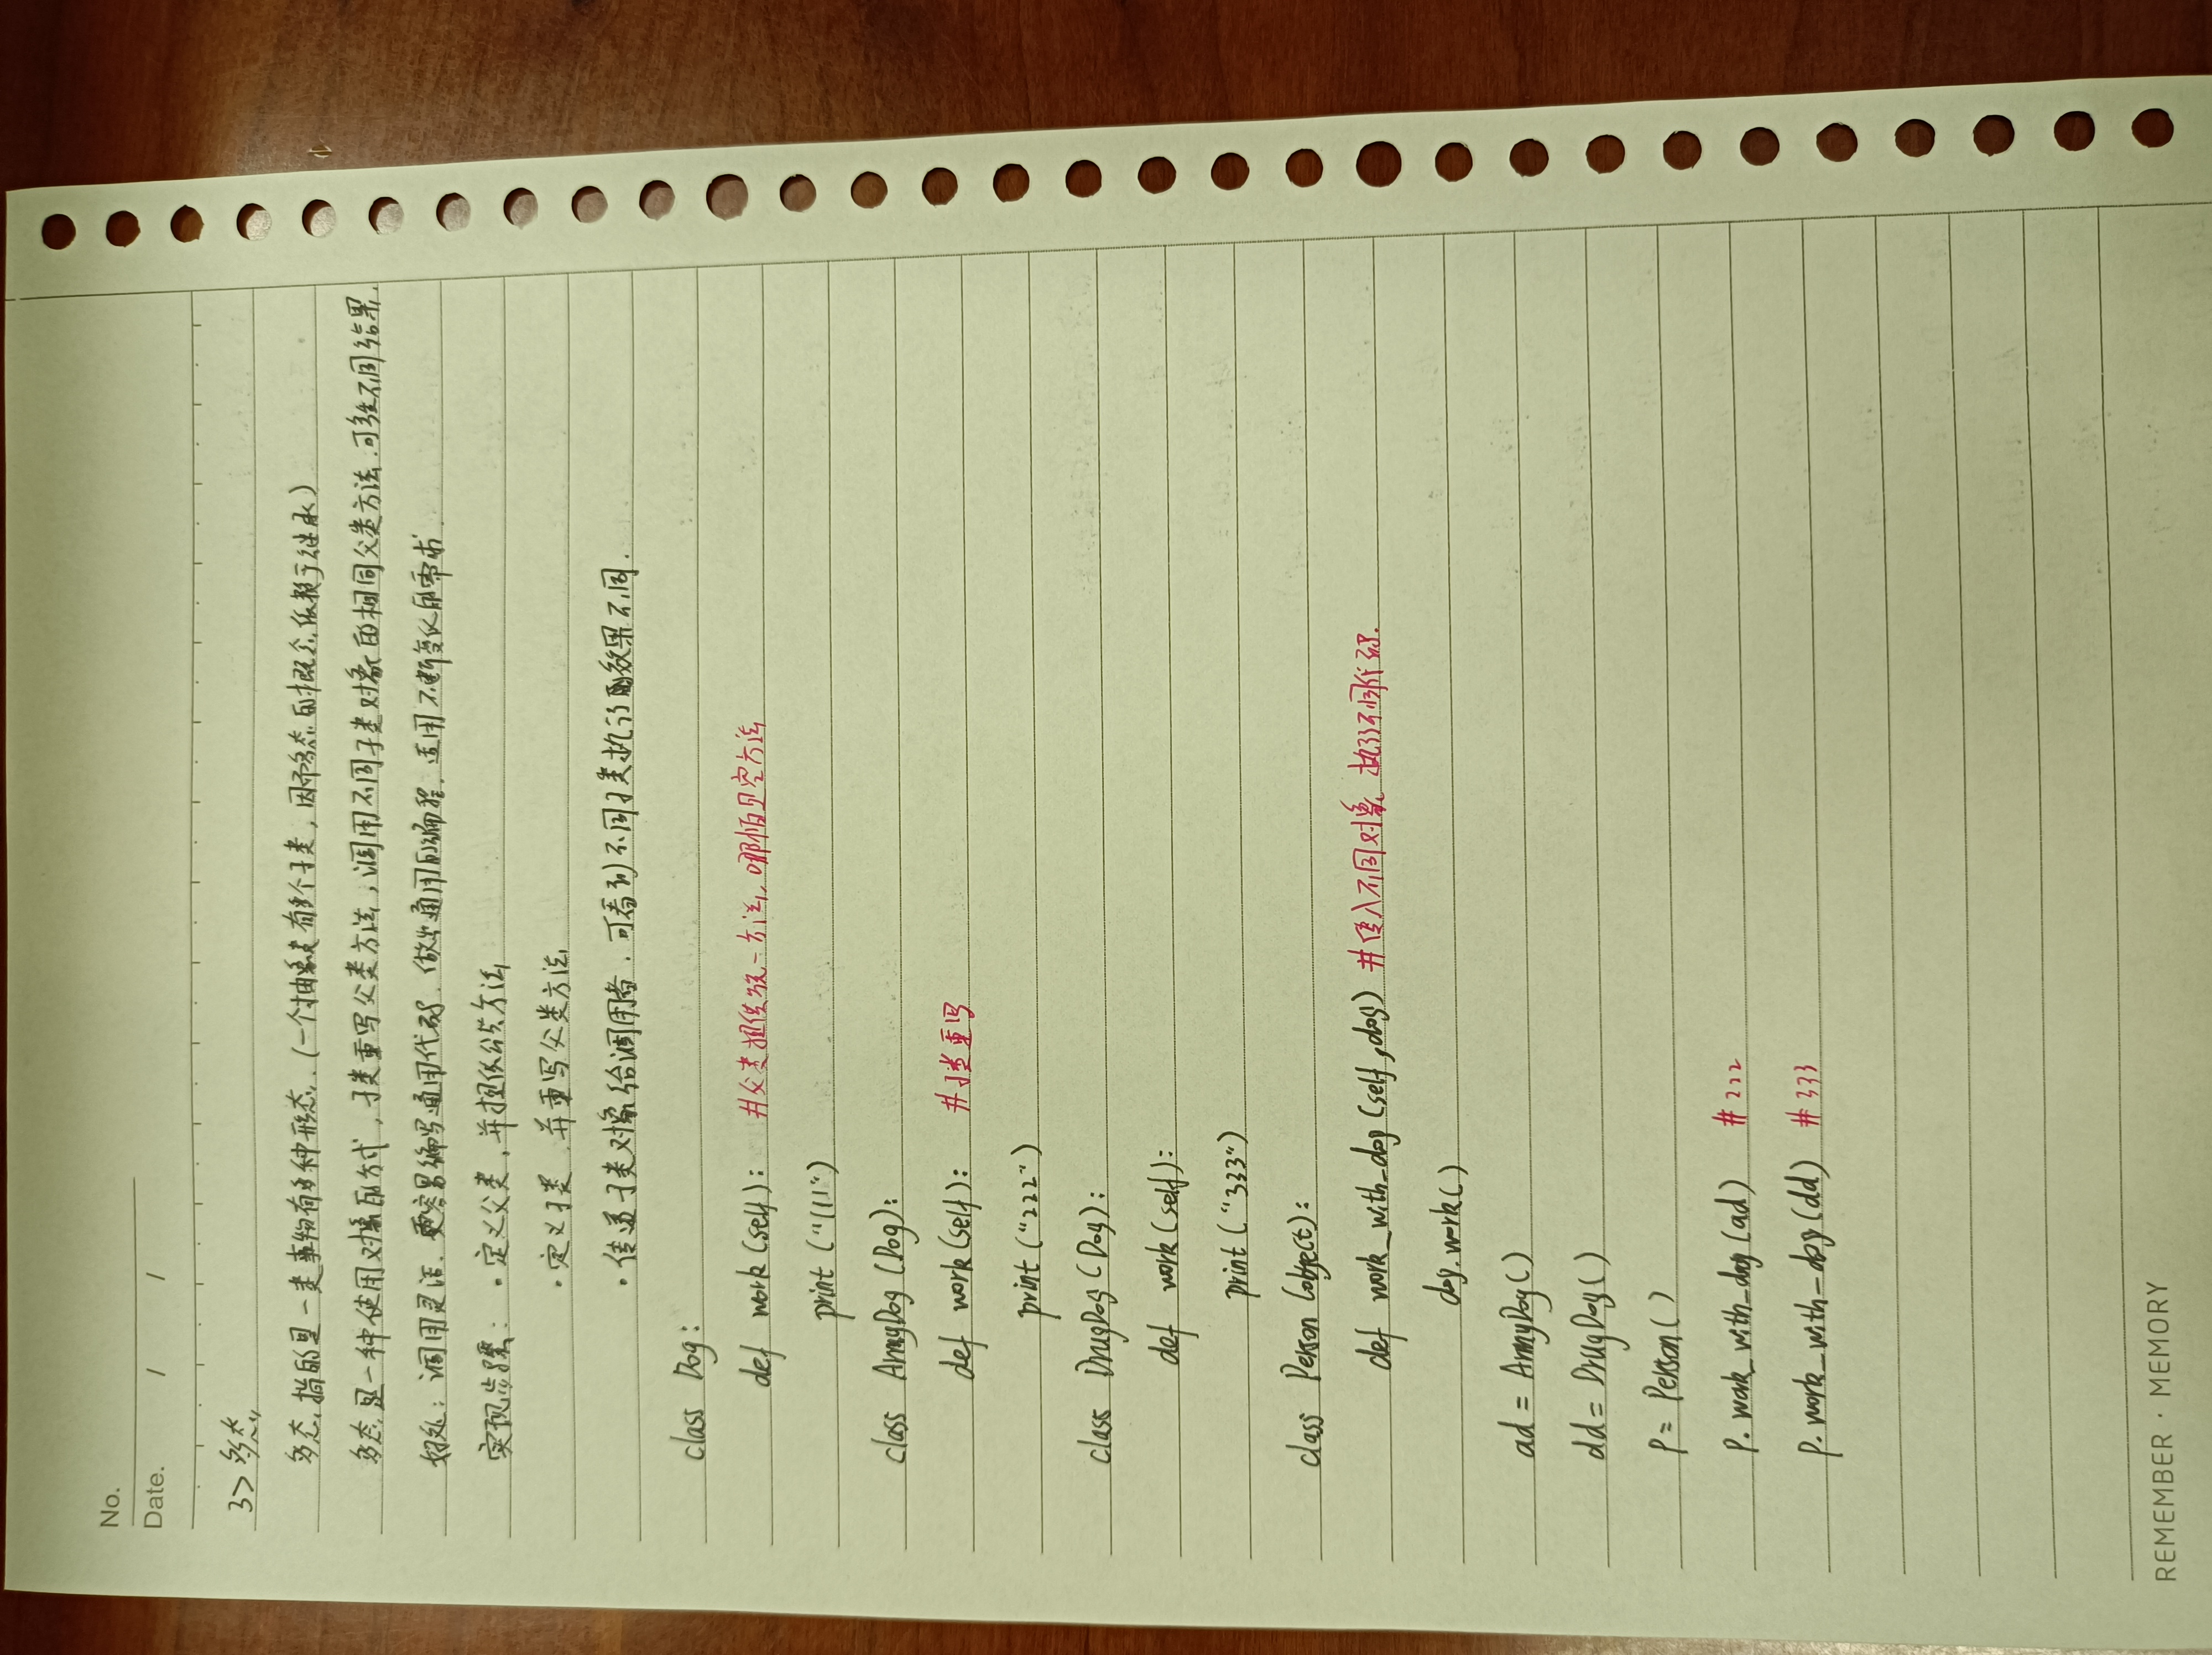 No.
Date. / /
3> 多态
多态指的是一类事物有多种形态.(一个抽象类有多个子类,因而多态的概念依赖于继承)
多态是一种使用对象的方式,子类重写父类方法,调用不同子类对象的相同父类方法.可产生不同结果.
好处:调用灵活.更容易编写通用代码.做出通用的编程.适用不断变化的需求.
实现步骤: ·定义父类,并提供公共方法
·定义子类.并重写父类方法
·传递子类对象给调用者.可看到不同子类执行的效果不同.
class Dog:
def work(self): #父类提供统一方法,哪怕是空方法
print("111")
class ArmyDog(Dog):
def work(self): #子类重写
print("222")
class DrugDog(Dog):
def work(self):
print("333")
class Person(object):
def work_with_dog(self,dog) #传入不同对象,执行不同代码.
dog.work()
ad = ArmyDog()
dd = DrugDog()
p = Person()
p.work_with_dog(ad) #222
p.work_with_dog(dd) #333
REMEMBER · MEMORY